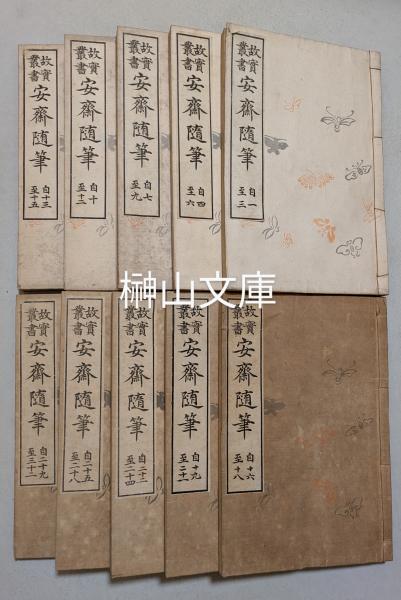 故實叢書 安齋隨筆 自一至三
故實叢書 安齋隨筆 自四至六
故實叢書 安齋隨筆 自七至九
故實叢書 安齋隨筆 自十至十二
故實叢書 安齋隨筆 自十三至十五
榊山文庫
故實叢書 安齋隨筆 自十六至十八
故實叢書 安齋隨筆 自十九至二十一
故實叢書 安齋隨筆 自二十二至二十四
故實叢書 安齋隨筆 自二十五至二十八
故實叢書 安齋隨筆 自二十九至三十二